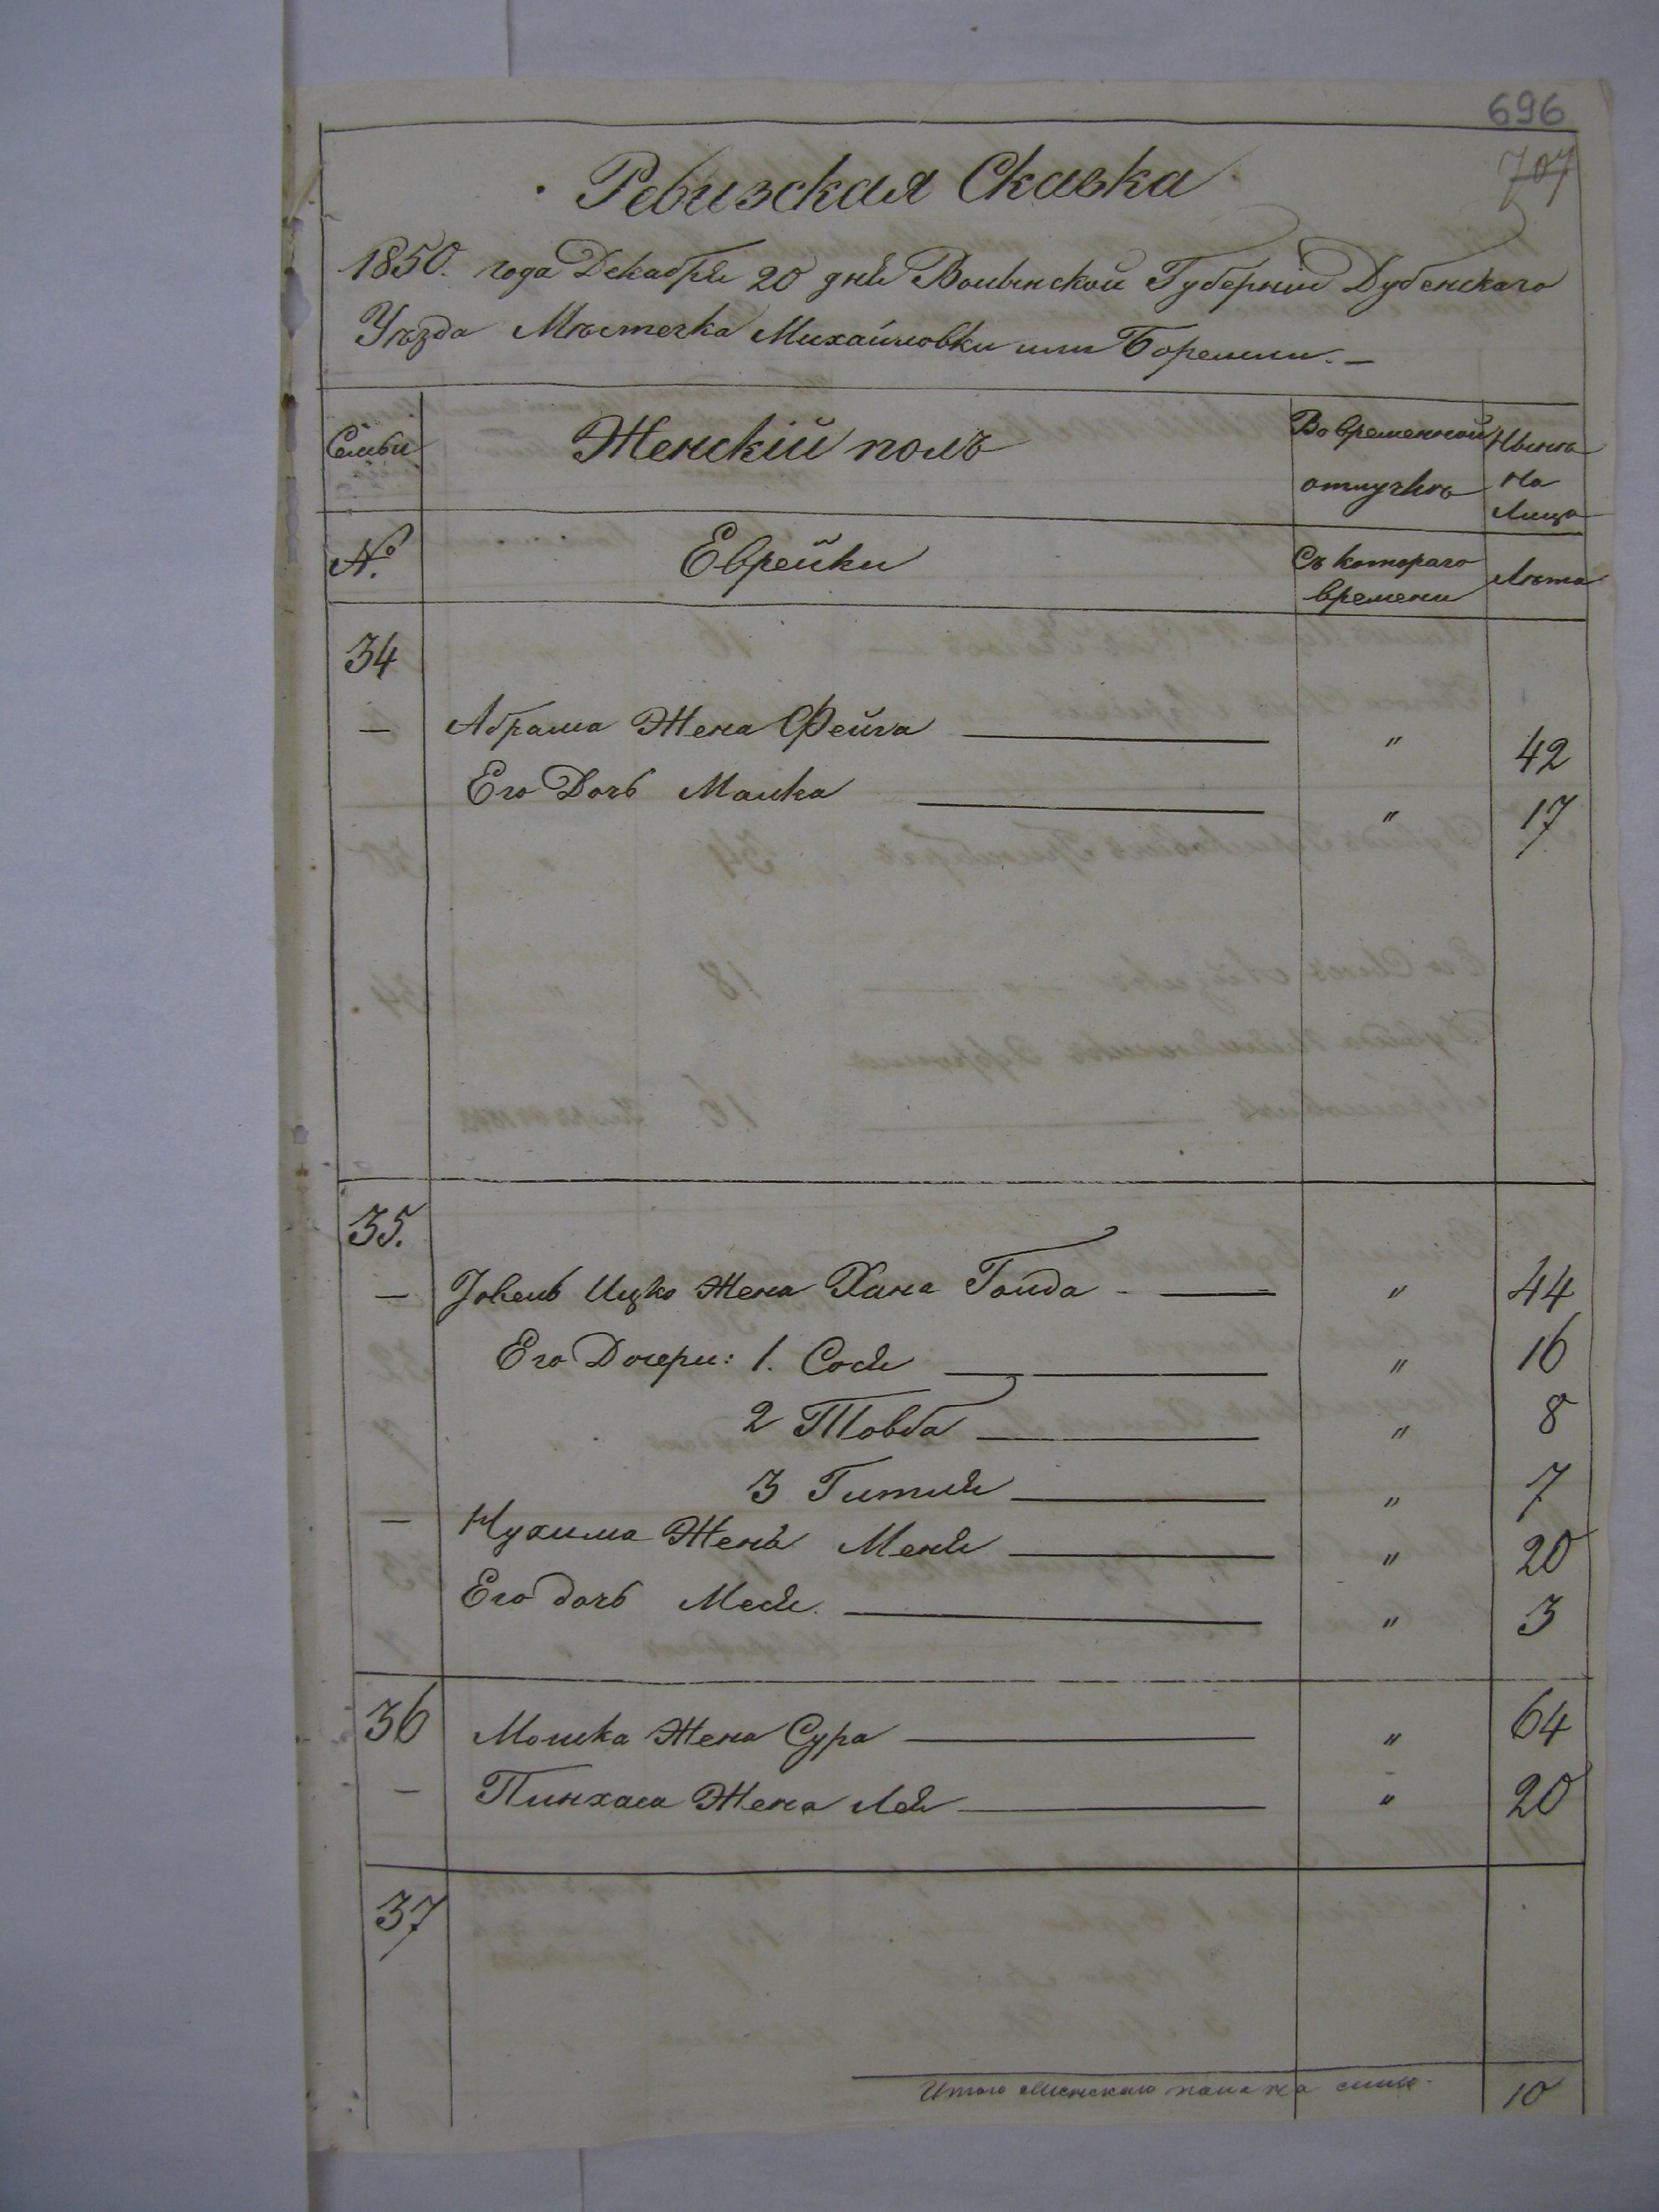 696
707
Ревизская Сказка
1850. года Декабря 20 дня Волынской Губерніи Дубенскаго
Уѣзда Мѣстечка Михайловки или Боремли.—
Семьи Женскій полъ Во временной отлучкѣ Нынѣ на Лицо
№. Еврейки Съ котораго времени Лѣта
34
— Абрама Жена Фейга — " 42
Его Дочь Малка — " 17
35.
— Іовель Ицко Жена Хана Голда — " 44
Его Дочери: 1. Сося — " 16
2 Товба — " 8
3 Гитля — " 7
— Нухима Жена Меня — " 20
Его дочь Мася. — " 3
36 Мошка Жена Сура — " 64
— Пинхаса Жена Лея — " 20
37
Итого Женскаго пола на лицо. 10